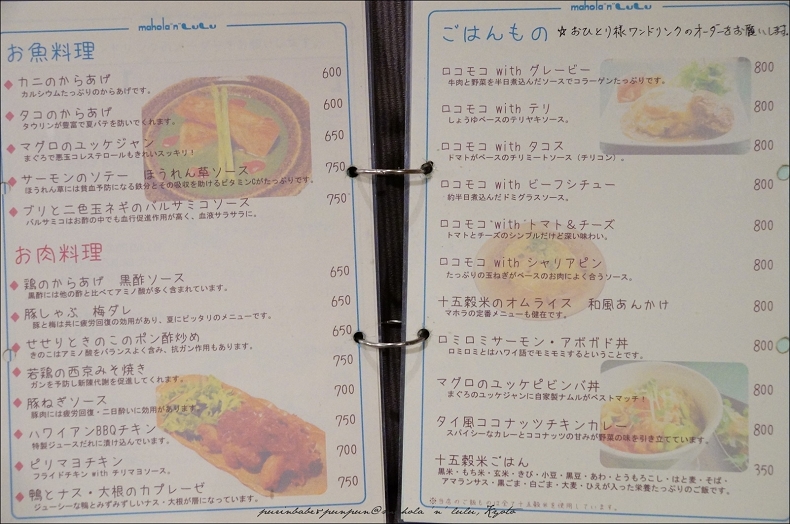 mahola 'n' LuLu
お魚料理
カニのからあげ 600
カルシウムたっぷりのからあげです。
タコのからあげ 600
タウリンが豊富で夏バテを防いでくれます。
マグロのユッケジャン 650
まぐろで悪玉コレステロールもきれいスッキリ！
サーモンのソテー ほうれん草ソース 750
ほうれん草には貧血予防になる鉄分とその吸収を助けるビタミンCがたっぷりです。
ブリと二色玉ネギのバルサミコソース 750
バルサミコはお酢の中でも血行促進作用が高く、血液サラサラに。
お肉料理
鶏のからあげ 黒酢ソース 650
黒酢には他の酢と比べてアミノ酸が多く含まれています。
豚しゃぶ 梅ダレ 650
豚と梅は共に疲労回復の効用があり、夏にピッタリのメニューです。
せせりときのこのポン酢炒め 650
きのこはアミノ酸をバランスよく含み、抗ガン作用もあります。
若鶏の西京みそ焼き 750
ガンを予防し新陳代謝を促進してくれます。
豚ねぎソース 700
豚肉には疲労回復・二日酔いに効果があります。
ハワイアンBBQチキン 750
特製ジュースだれに漬け込んでいます。
ピリマヨチキン 700
フライドチキン with チリマヨソース。
鴨とナス・大根のカプレーゼ 750
ジューシーな鴨とみずみずしいナス・大根が層になっています。
mahola 'n' LuLu
ごはんもの ☆おひとり様ワンドリンクのオーダーをお願いします。
ロコモコ with グレービー 800
牛肉と野菜を半日煮込んだソースでコラーゲンたっぷりです。
ロコモコ with テリ 800
しょうゆベースのテリヤキソース。
ロコモコ with タコス 800
トマトがベースのチリミートソース（チリコン）。
ロコモコ with ビーフシチュー 800
約半日煮込んだドミグラスソース。
ロコモコ with トマト＆チーズ 800
トマトとチーズのシンプルだけど深い味わい。
ロコモコ with シャリアピン 800
たっぷりの玉ねぎがベースのお肉によく合うソース。
十五穀米のオムライス 和風あんかけ 800
マホラの定番メニューも健在です。
ロミロミサーモン・アボガド丼 800
ロミロミとはハワイ語でモミモミするということです。
マグロのユッケビビンバ丼 800
まぐろのユッケジャンに自家製ナムルがベストマッチ！
タイ風ココナッツチキンカレー 800
スパイシーなカレーとココナッツの甘みが野菜の味を引き立てています。
十五穀米ごはん 350
黒米・もち米・玄米・きび・小豆・黒豆・あわ・とうもろこし・はと麦・そば・
アマランサス・黒ごま・白ごま・大麦・ひえが入った栄養たっぷりのご飯です。
purinbabe&punpun@mahola 'n' lulu, Kyoto